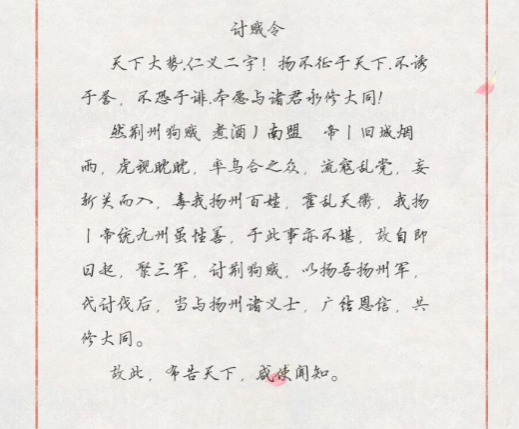 讨贼令
天下大势,仁义二字！扬不征于天下,不诱
于誉，不恐于诽,本愿与诸君永修大同!
然荆州狗贼 煮酒丿南盟 帝丨旧城烟
雨，虎视眈眈，率乌合之众，流寇乱党，妄
新关而入，毒我扬州百姓，霍乱天衢，我扬
丨帝统九州虽性善，于此事亦不堪，故自即
日起，聚三军，讨荆狗贼，以扬吾扬州军，
代讨伐后，当与扬州诸义士，广结恩信，共
修大同。
故此，布告天下，咸使闻知。